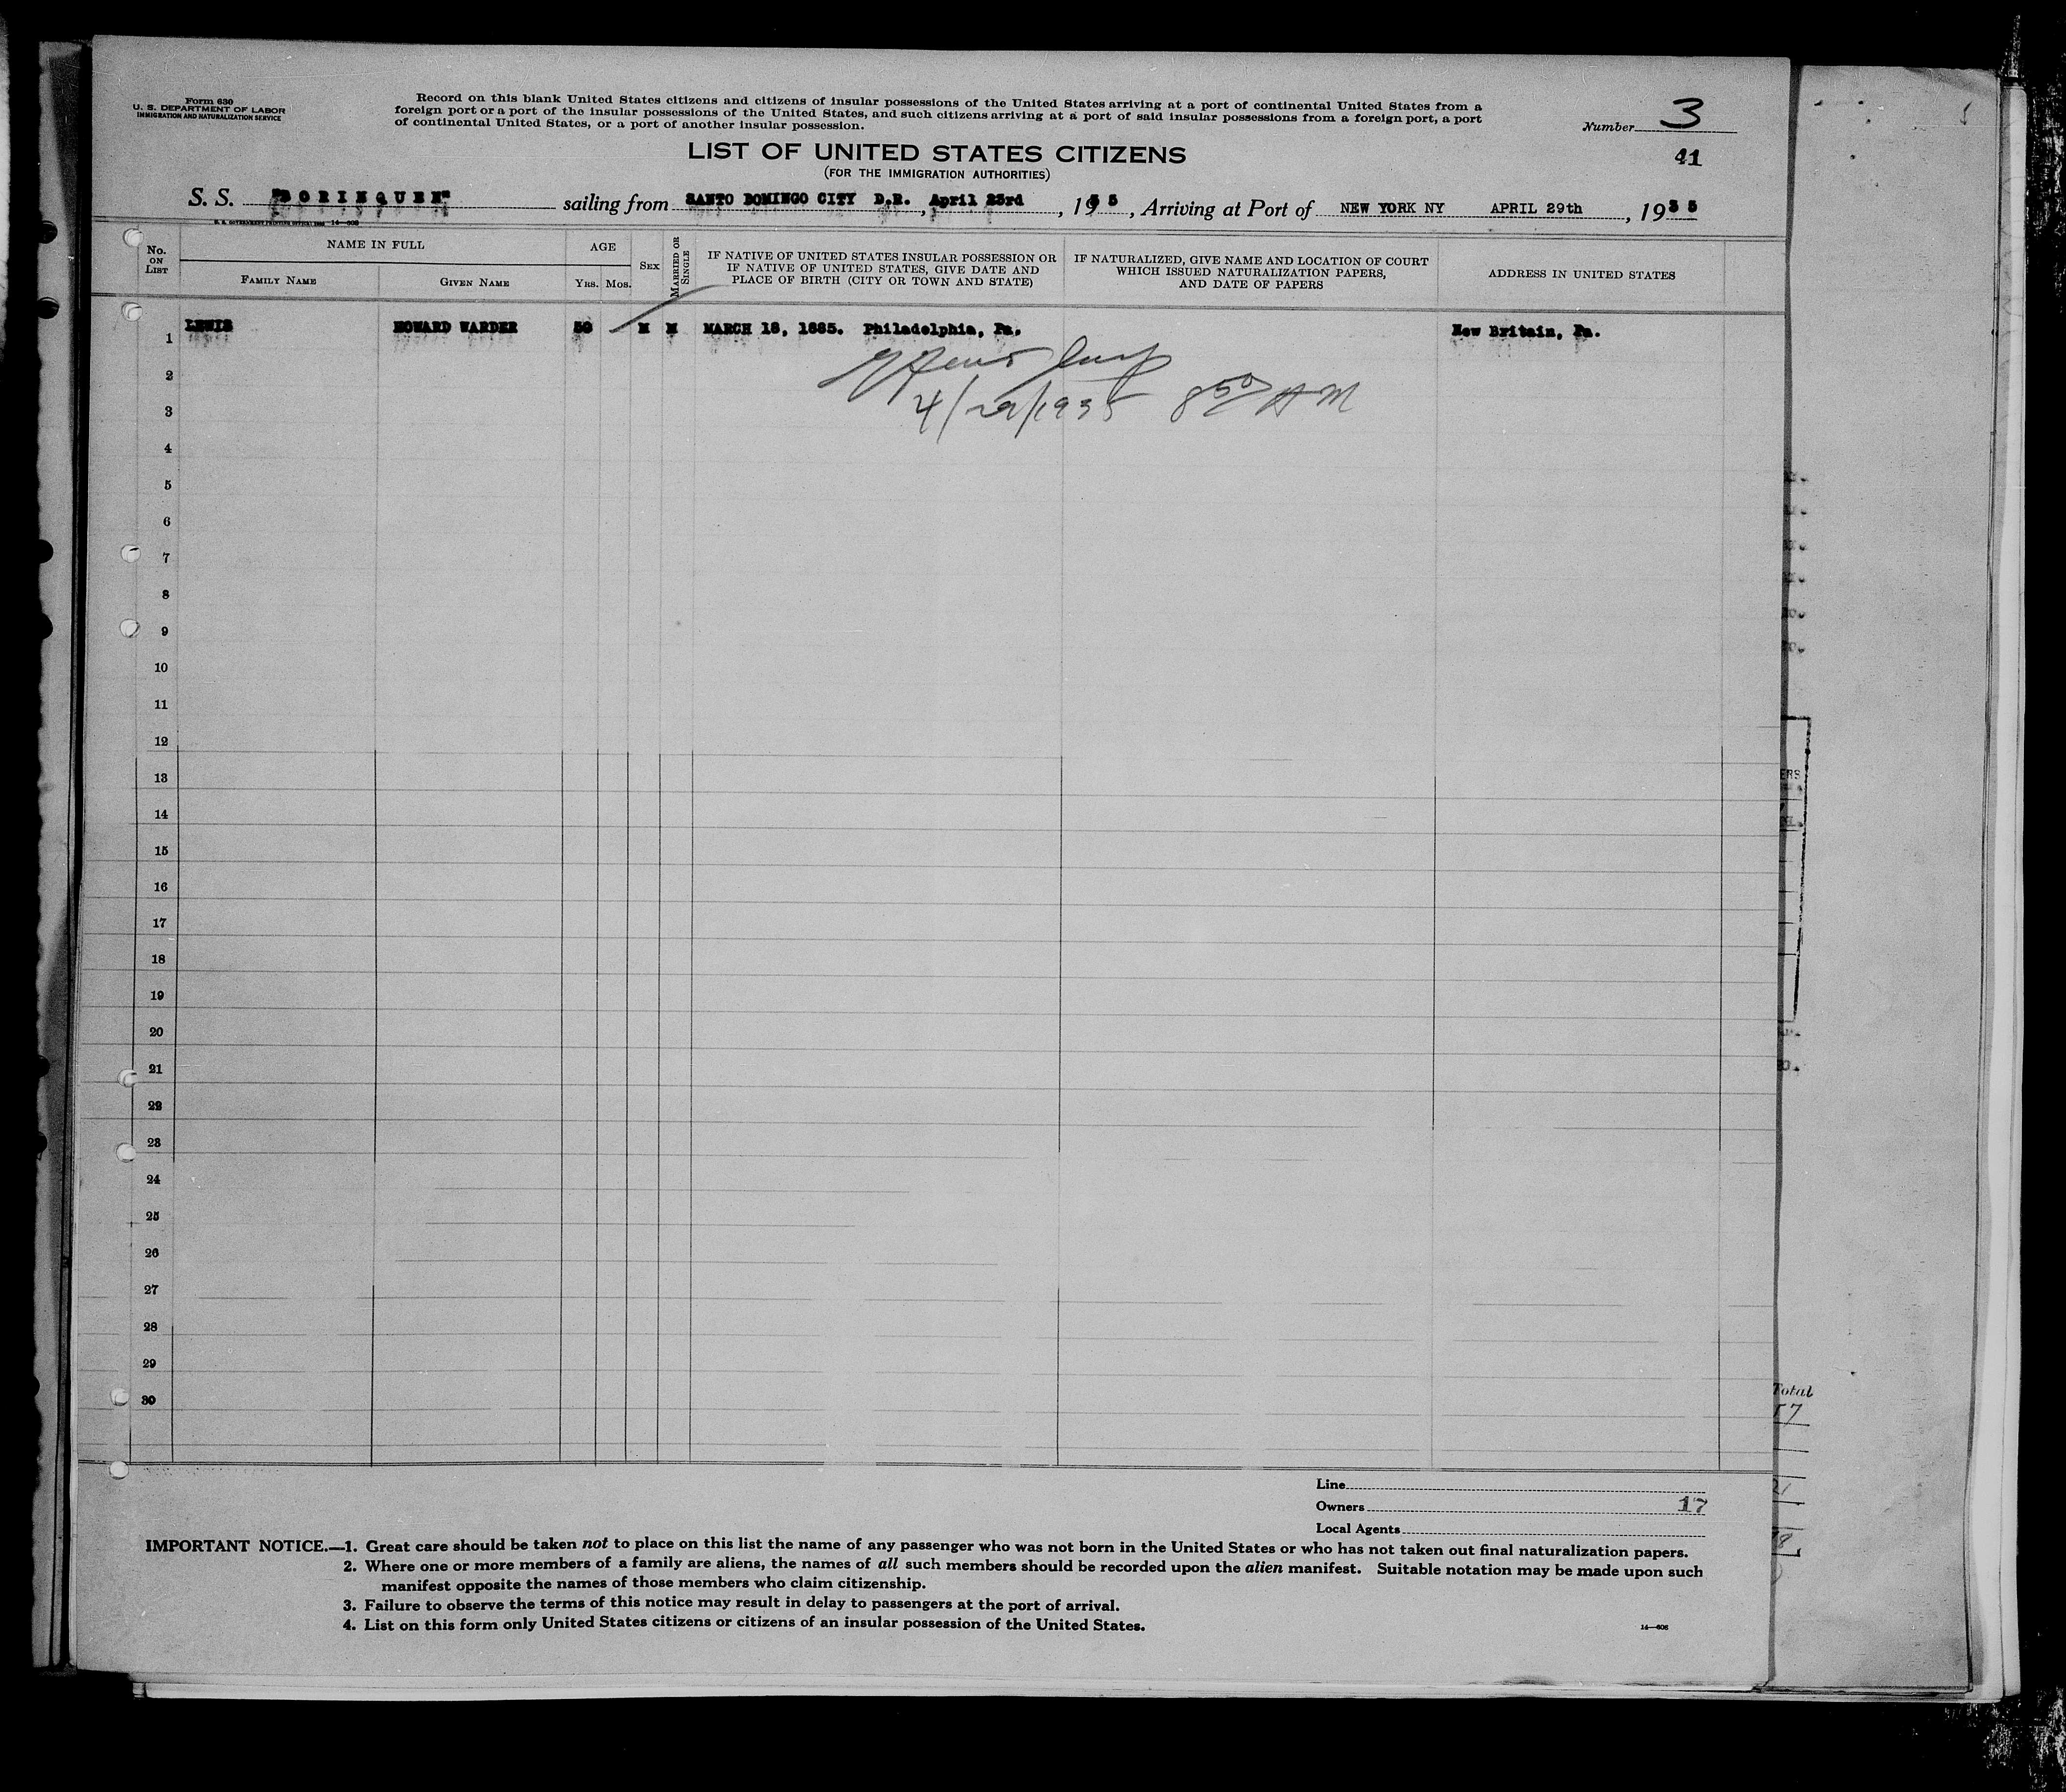 Form 630
U. S. DEPARTMENT OF LABOR
IMMIGRATION AND NATURALIZATION SERVICE
Record on this blank United States citizens and citizens of insular possessions of the United States arriving at a port of continental United States from a
foreign port or a port of the insular possessions of the United States, and such citizens arriving at a port of said insular possessions from a foreign port, a port
of continental United States, or a port of another insular possession.
Number 3
41
LIST OF UNITED STATES CITIZENS
(FOR THE IMMIGRATION AUTHORITIES)
S. S. "BORINQUEN" sailing from SANTO DOMINGO CITY D.R., April 23rd, 1935, Arriving at Port of NEW YORK NY APRIL 29th, 1935
No. ON LIST
NAME IN FULL
FAMILY NAME
GIVEN NAME
AGE
YRS. MOS.
SEX
MARRIED OR SINGLE
IF NATIVE OF UNITED STATES INSULAR POSSESSION OR
IF NATIVE OF UNITED STATES, GIVE DATE AND
PLACE OF BIRTH (CITY OR TOWN AND STATE)
IF NATURALIZED, GIVE NAME AND LOCATION OF COURT
WHICH ISSUED NATURALIZATION PAPERS,
AND DATE OF PAPERS
ADDRESS IN UNITED STATES
1 LEWIS HOWARD WARDER 50 M M MARCH 18, 1885. Philadelphia, Pa. New Britain, Pa.
2
3 4/29/1935 8 50 AM
4
5
6
7
8
9
10
11
12
13
14
15
16
17
18
19
20
21
22
23
24
25
26
27
28
29
30
Line
Owners 17
Local Agents
IMPORTANT NOTICE.—1. Great care should be taken not to place on this list the name of any passenger who was not born in the United States or who has not taken out final naturalization papers.
2. Where one or more members of a family are aliens, the names of all such members should be recorded upon the alien manifest. Suitable notation may be made upon such
manifest opposite the names of those members who claim citizenship.
3. Failure to observe the terms of this notice may result in delay to passengers at the port of arrival.
4. List on this form only United States citizens or citizens of an insular possession of the United States.
14—608
Total
17